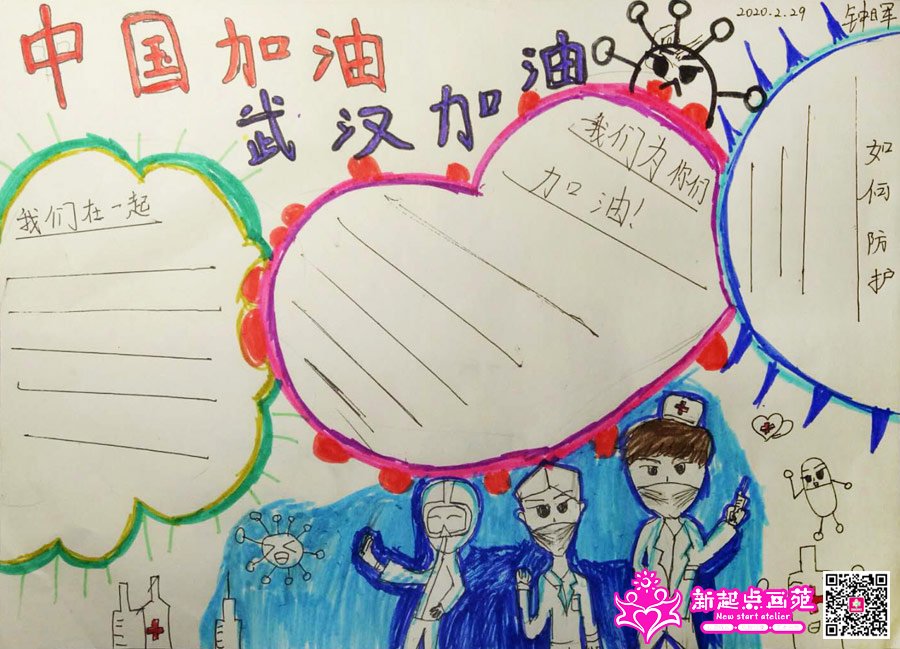 中国加油
武汉加油
2020.2.29
钟晖
我们在一起
我们为你们
加油!
如何防护
新起点画苑
New start atelier